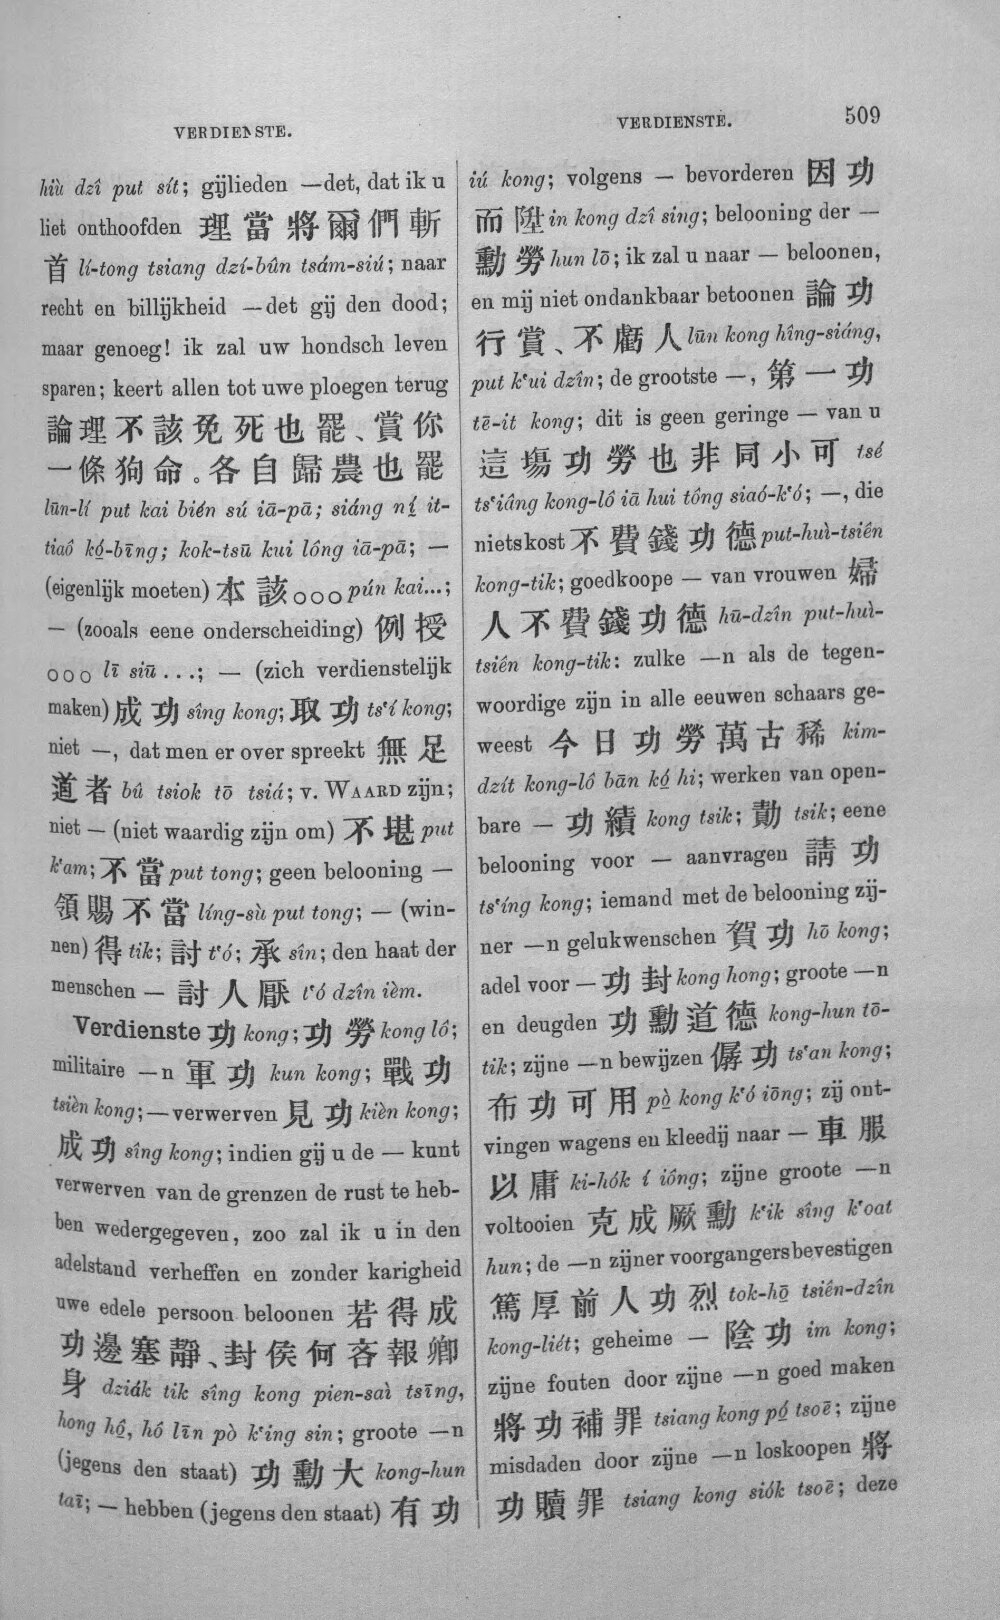 VERDIENSTE.
hiù dzî put sít; gijlieden —det, dat ik u
liet onthoofden 理當將爾們斬
首 lí-tong tsiang dzí-bûn tsám-siú; naar
recht en billijkheid —det gij den dood;
maar genoeg! ik zal uw hondsch leven
sparen; keert allen tot uwe ploegen terug
論理不該免死也罷、賞你
一條狗命。各自歸農也罷
lūn-lí put kai bién sú iā-pā; siáng ní it-
tiaô kó-bīng; kok-tsū kui lông iā-pā; —
(eigenlijk moeten) 本該○○○ pún kai...;
— (zooals eene onderscheiding) 例授
○○○ lī siū ...; — (zich verdienstelijk
maken) 成功 sîng kong; 取功 ts‘í kong;
niet —, dat men er over spreekt 無足
道者 bû tsiok tō tsiá; v. WAARD zijn;
niet — (niet waardig zijn om) 不堪 put
k‘am; 不當 put tong; geen belooning —
領賜不當 líng-sù put tong; — (win-
nen) 得 tik; 討 t‘ó; 承 sîn; den haat der
menschen — 討人厭 t‘ó dzîn ièm.
Verdienste 功 kong; 功勞 kong lô;
militaire —n 軍功 kun kong; 戰功
tsièn kong; — verwerven 見功 kièn kong;
成功 sîng kong; indien gij u de — kunt
verwerven van de grenzen de rust te heb-
ben wedergegeven, zoo zal ik u in den
adelstand verheffen en zonder karigheid
uwe edele persoon beloonen 若得成
功邊塞靜、封侯何吝報卿
身 dziák tik sîng kong pien-saì tsīng,
hong hô, hô līn pò k‘ing sin; groote —n
(jegens den staat) 功勳大 kong-hun
taī; — hebben (jegens den staat) 有功
VERDIENSTE. 509
iú kong; volgens — bevorderen 因功
而陞 in kong dzî sing; belooning der —
勳勞 hun lō; ik zal u naar — beloonen,
en mij niet ondankbaar betoonen 論功
行賞、不虧人 lūn kong hîng-siáng,
put k‘ui dzîn; de grootste —, 第一功
tē-it kong; dit is geen geringe — van u
這場功勞也非同小可 tsé
ts‘iâng kong-lô iā hui tông siaó-k‘ó; —, die
niets kost 不費錢功德 put-huì-tsiên
kong-tik; goedkoope — van vrouwen 婦
人不費錢功德 hū-dzîn put-huì-
tsiên kong-tik: zulke —n als de tegen-
woordige zijn in alle eeuwen schaars ge-
weest 今日功勞萬古稀 kim-
dzít kong-lô bān kó hi; werken van open-
bare — 功績 kong tsik; 勣 tsik; eene
belooning voor — aanvragen 請功
ts‘íng kong; iemand met de belooning zij-
ner —n gelukwenschen 賀功 hō kong;
adel voor — 功封 kong hong; groote —n
en deugden 功勳道德 kong-hun tō-
tik; zijne —n bewijzen 孱功 ts‘an kong;
布功可用 pò kong k‘ó iōng; zij ont-
vingen wagens en kleedij naar — 車服
以庸 ki-hók í iông; zijne groote —n
voltooien 克成厥勳 k‘ik sîng k‘oat
hun; de —n zijner voorgangers bevestigen
篤厚前人功烈 tok-hō tsiên-dzîn
kong-liét; geheime — 陰功 im kong;
zijne fouten door zijne —n goed maken
將功補罪 tsiang kong pó tsoē; zijne
misdaden door zijne —n loskoopen 將
功贖罪 tsiang kong siók tsoē; deze